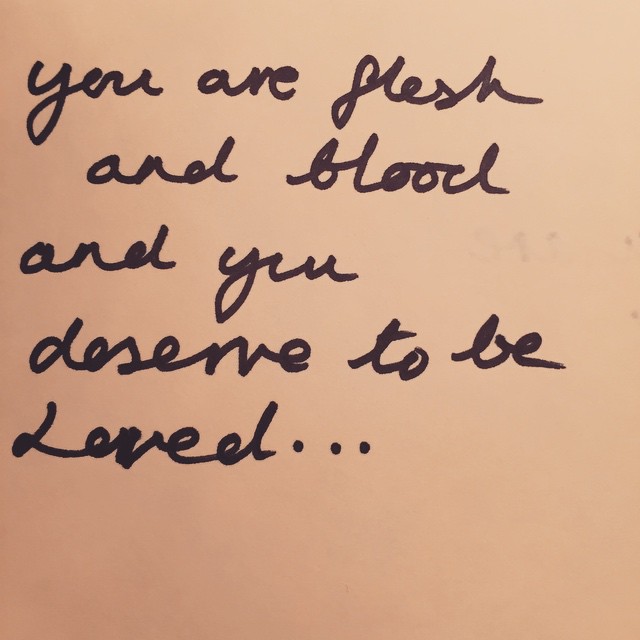 you are flesh
and blood
and you
deserve to be
Loved...